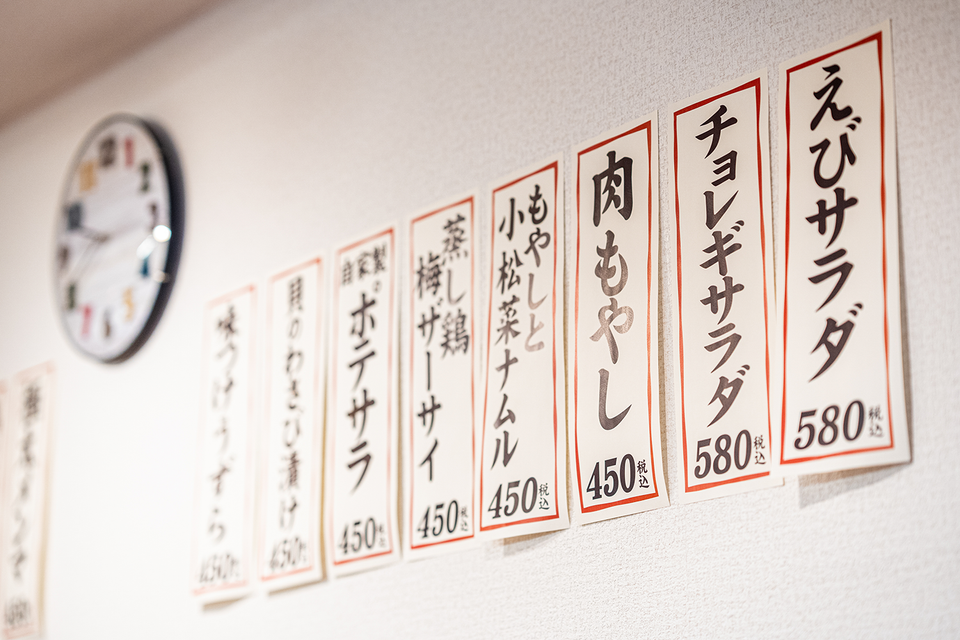 えびサラダ
580税込
チョレギサラダ
580税込
肉もやし
450税込
もやしと
小松菜ナムル
450税込
蒸し鶏
梅ザーサイ
450税込
自家製
ポテサラ
450税込
貝のわさび漬け
450
味つけうずら
450
12
1
2